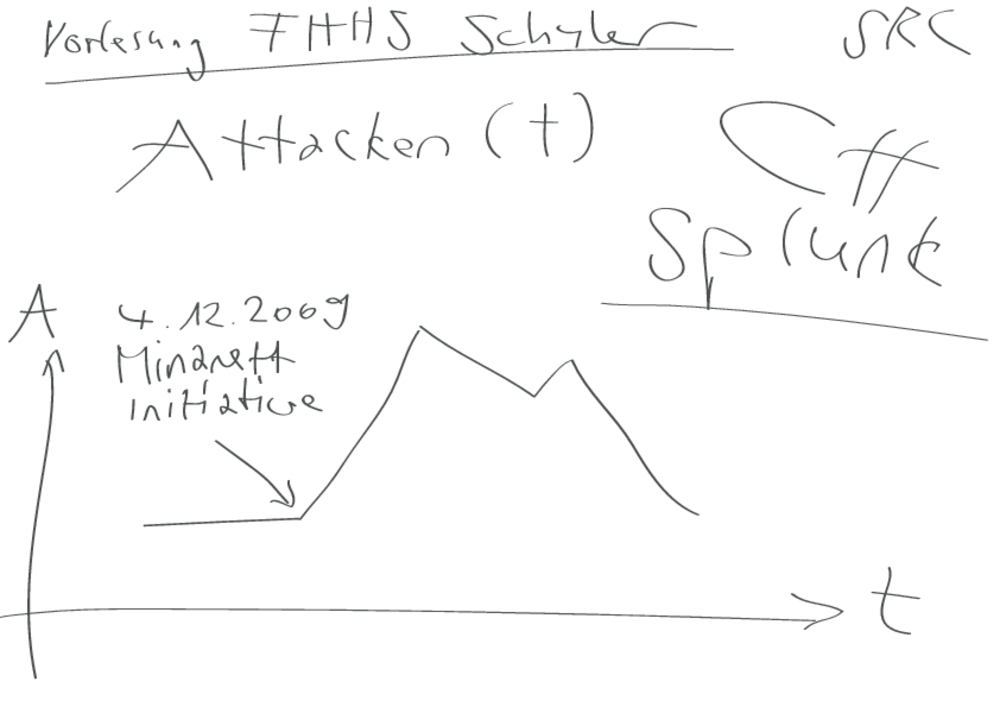 Vorlesung FHHS Schyler SRC
Attacken (t)
Cff
Splunk
A
4.12.2009
Minarett
Initiative
t